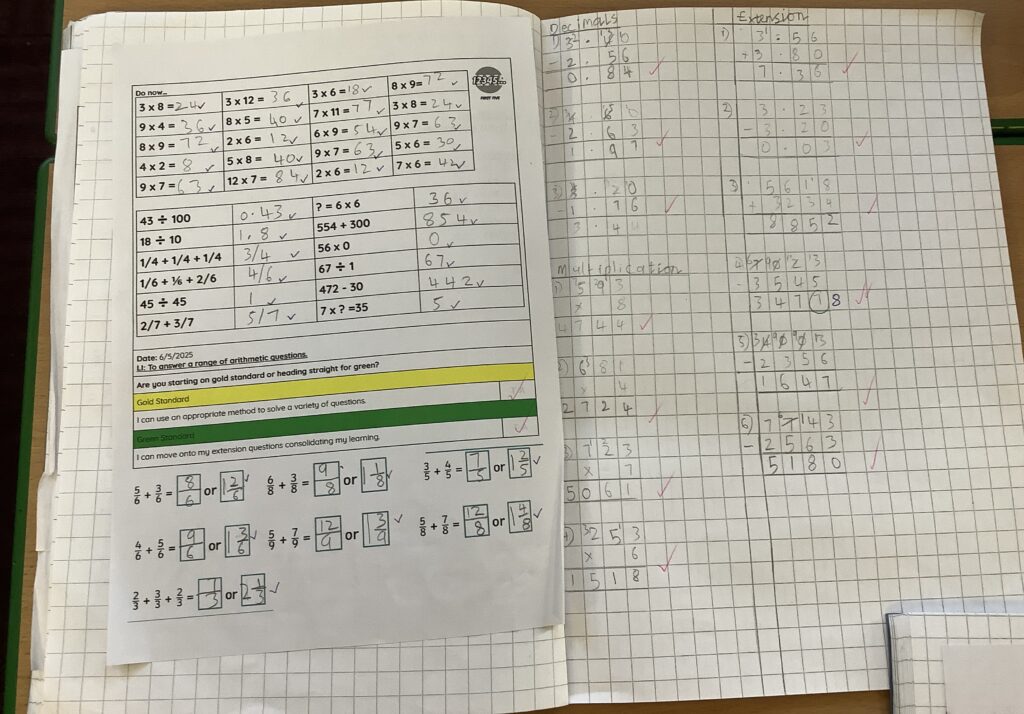 Do now...
3 x 8 = 24 ✓ 3 x 12 = 36 ✓ 3 x 6 = 18 ✓ 8 x 9 = 72 ✓
9 x 4 = 36 ✓ 8 x 5 = 40 ✓ 7 x 11 = 77 ✓ 3 x 8 = 24 ✓
8 x 9 = 72 ✓ 2 x 6 = 12 ✓ 6 x 9 = 54 ✓ 9 x 7 = 63 ✓
4 x 2 = 8 ✓ 5 x 8 = 40 ✓ 9 x 7 = 63 ✓ 5 x 6 = 30 ✓
9 x 7 = 63 ✓ 12 x 7 = 84 ✓ 2 x 6 = 12 ✓ 7 x 6 = 42 ✓
12345...
FIRST FIVE
43 ÷ 100 0.43 ✓ ? = 6 x 6 36 ✓
18 ÷ 10 1.8 ✓ 554 + 300 854 ✓
1/4 + 1/4 + 1/4 3/4 ✓ 56 x 0 0 ✓
1/6 + ⅙ + 2/6 4/6 ✓ 67 ÷ 1 67 ✓
45 ÷ 45 1 ✓ 472 - 30 442 ✓
2/7 + 3/7 5/7 ✓ 7 x ? =35 5 ✓
Date: 6/5/2025
LI: To answer a range of arithmetic questions.
Are you starting on gold standard or heading straight for green?
Gold Standard
I can use an appropriate method to solve a variety of questions.
Green Standard
I can move onto my extension questions consolidating my learning.
5/6 + 3/6 = 8/6 or 1 2/6 ✓ 6/8 + 3/8 = 9/8 or 1 1/8 ✓ 3/5 + 4/5 = 7/5 or 1 2/5 ✓
4/6 + 5/6 = 9/6 or 1 3/6 ✓ 5/9 + 7/9 = 12/9 or 1 3/9 ✓ 5/8 + 7/8 = 12/8 or 1 4/8 ✓
2/3 + 3/3 + 2/3 = or 2 1/3 ✓
Decimals
1)
- 2.56
0.84
2)
- 2.63
1.97
- 1.76
3.44
Multiplication
1) 593
x 8
4744
2) 681
x 4
2724
3) 723
x 7
5061
4) 253
x 6
1518
Extension
1) 3.56
+ 3.80
7.36
2) 3.23
- 3.20
0.03
3) 5618
+ 3234
8852
4)
- 3545
3478
5)
- 2356
1647
6) 7743
- 2563
5180